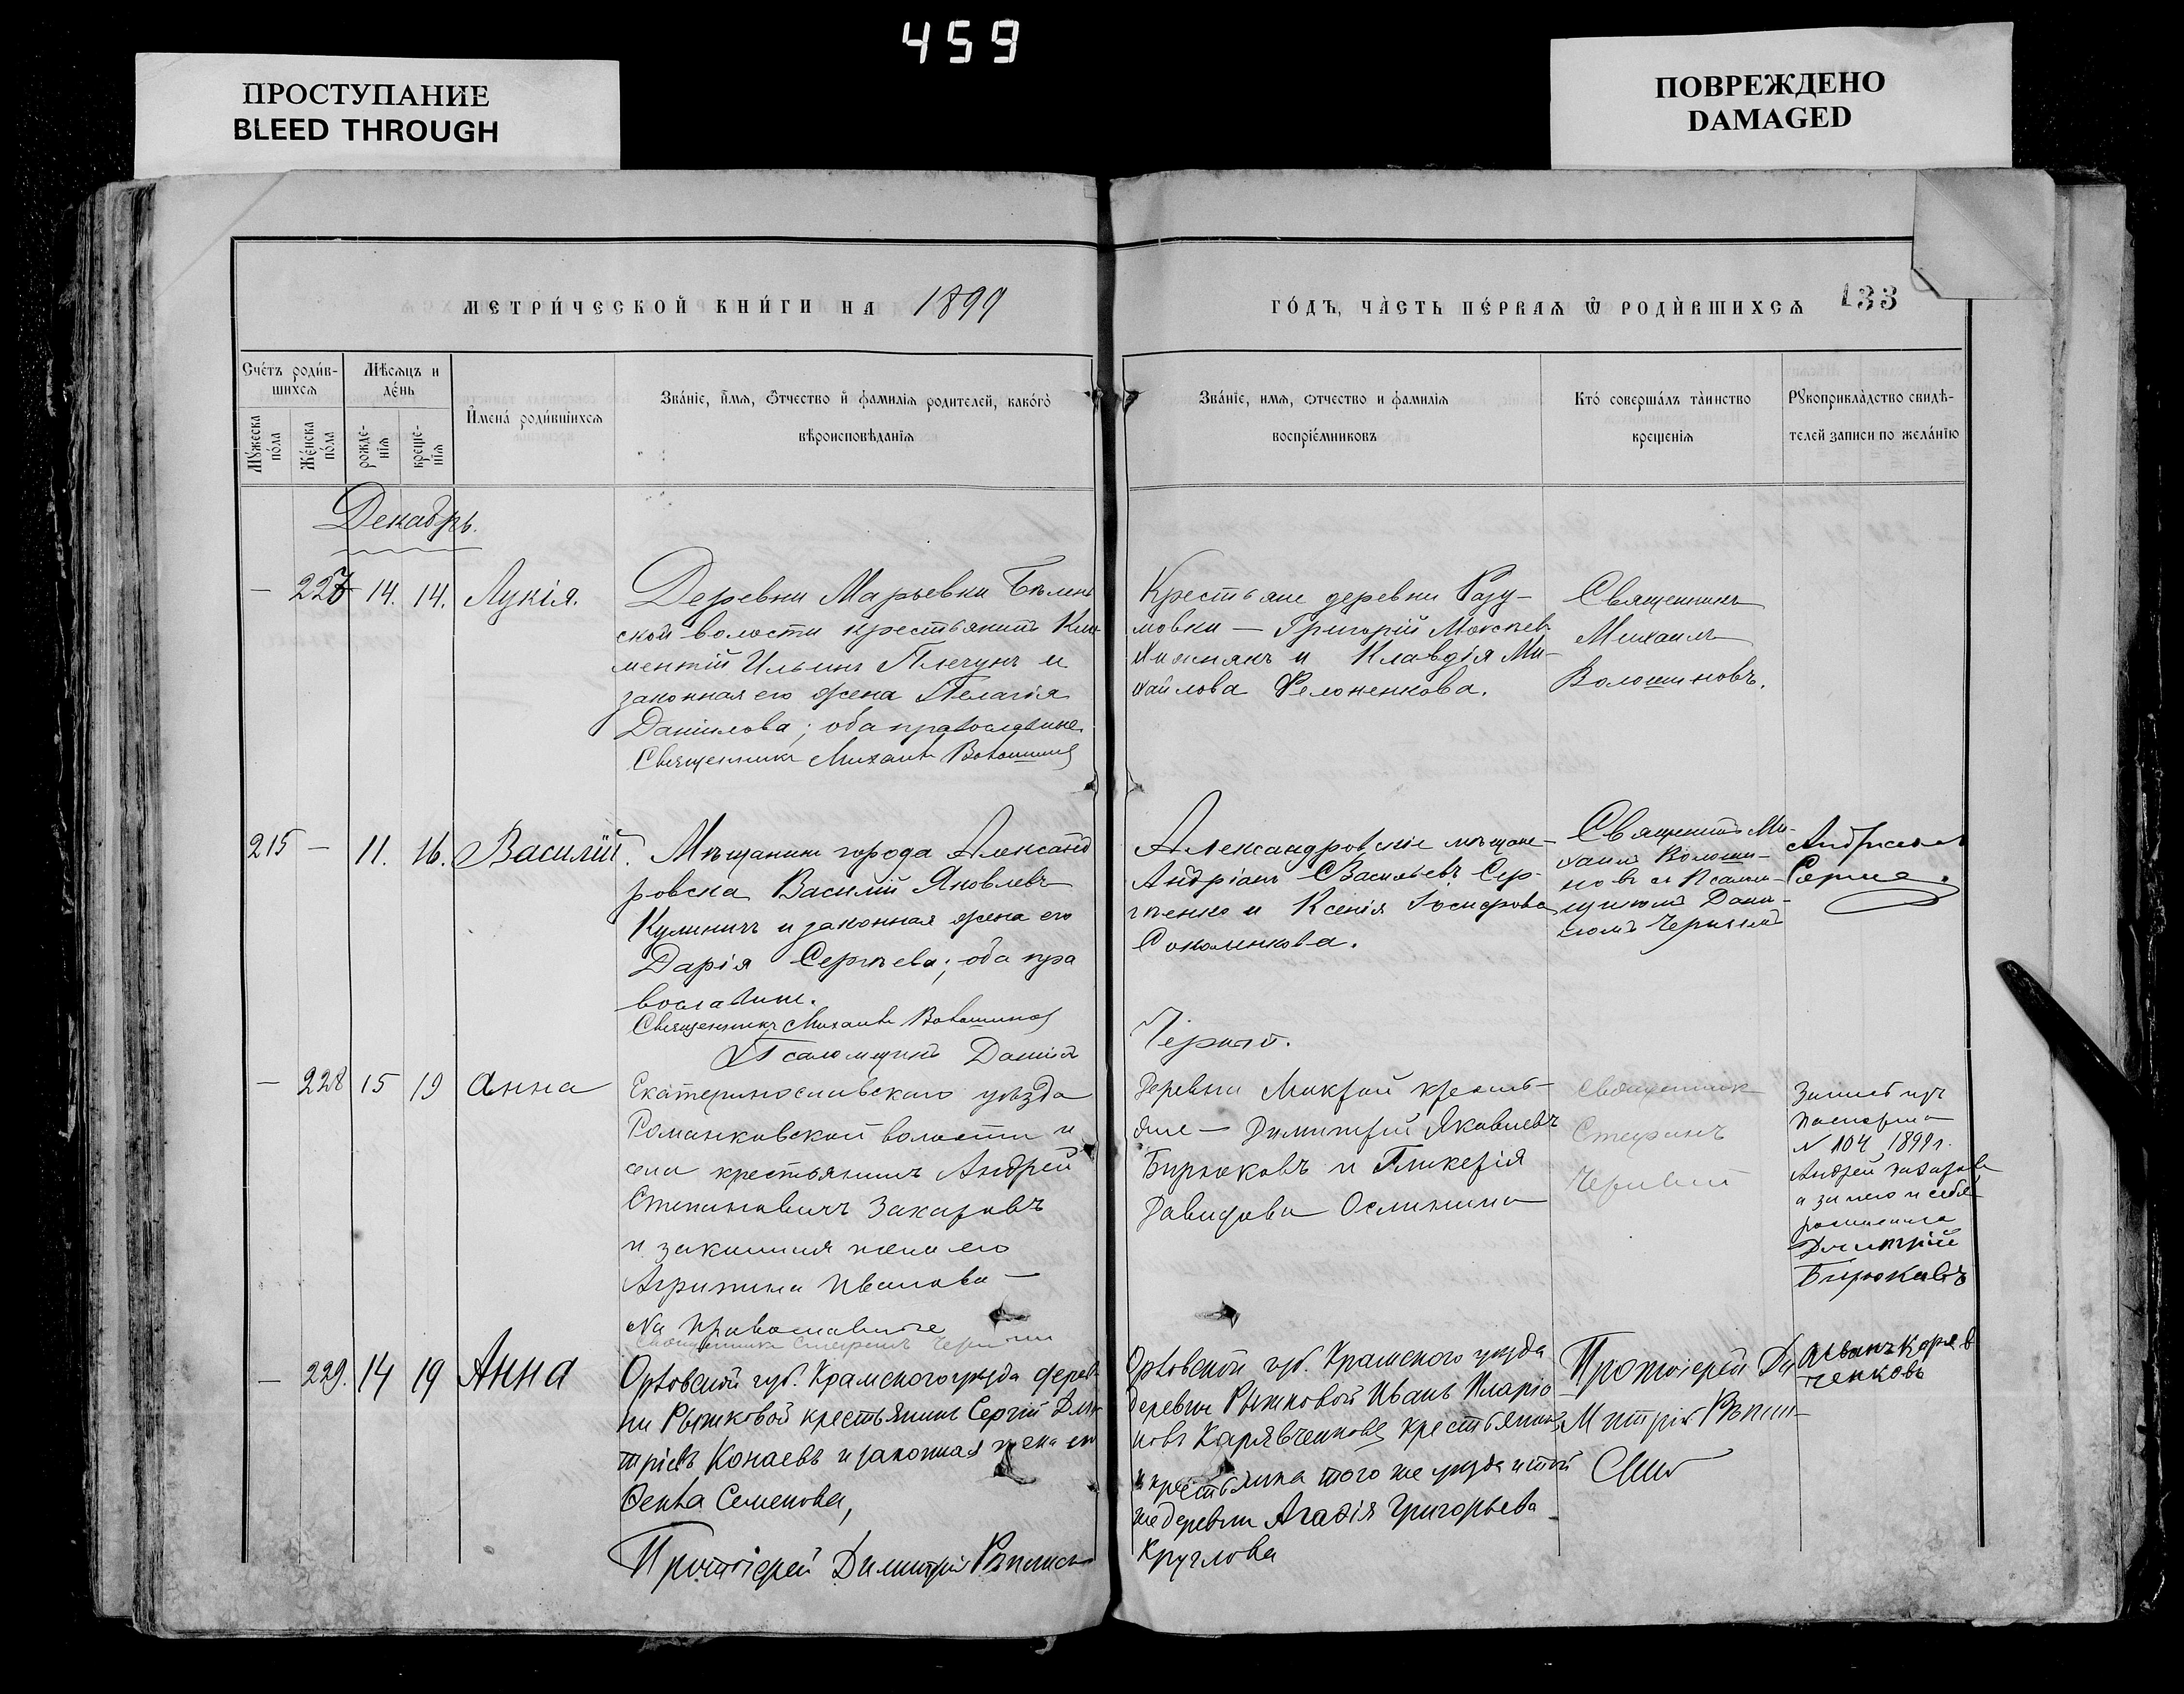 459
ПРОСТУПАНИЕ
BLEED THROUGH
ПОВРЕЖДЕНО
DAMAGED
МЕТРИ́ЧЕСКОЙ КНИ́ГИ НА 1899
ГО́ДЪ, ЧА̀СТЬ ПЕ́РВАѦ Ѿ РОДЍВШИХСѦ 133
Сче́тъ роди́в-
шихсѧ
Мѣсѧцъ и
де́нь
Мꙋ́жеска
по́ла
Же́нска
по́ла
рожде-
нїѧ
креще-
нїѧ
И҆мена̀ роди́вшихсѧ
Зва́нїе, и҆́мѧ, ѻ҆́тчество и҆ фамилїѧ родителей, како́гѡ
вѣроисповѣданїѧ
Зва́нїе, имѧ, ѻтчество и фамилїѧ
воспрїе́мниковъ
Кто́ соверша́лъ та̀инство
крещенїѧ
Рꙋкоприкла̀дство свидѣ-
телей записи по жела́нїю
Декабрь.
— 227 14. 14. Лукія.
Деревни Марьевки Бѣлень
ской волости крестьянинъ Кли
ментій Ильинъ Плечунъ и
законная его жена Пелагія
Данилова; оба православные
Священникъ Михаилъ Волошинов
Крестьяне деревни Разу-
мовки — Григорій
и Клавдія Ми-
хайлова
Священникъ
Михаилъ
Волошиновъ.
215 — 11. 16. Василій.
Мѣщанинъ города Александ
ровска Василій Яковлевъ
Кулиничъ и законная жена его
Дарія Сергѣева; оба пра
вославные.
Священникъ Михаилъ Волошинов
Псаломщикъ Даніилъ
Александровскіе мѣщане-
Андріанъ Васильевъ Сер-
гѣенко и Ксенія Іосифова
Соколенкова.
Черный.
Священникъ Ми-
хаилъ Волоши-
новъ съ Псалом-
щикомъ Дани-
ломъ Чернымъ
— 228 15 19 Анна
Екатеринославскаго уѣзда
Романковской волости и
села крестьянинъ Андрей
Степановичъ Захаровъ
и законная жена его
Агрипина Иванова —
православные
Священникъ Стефанъ
Деревни Мокрой кресть-
яне — Димитрій Яковлевъ
Бирюковъ и Гликерія
Давидова
Священник
Стефанъ
Запись изъ
паспорта
N 104 1899 г.
Андрей Захаровъ
а за него и себя
росписался
Дмитрій
Бирюковъ
— 229. 14 19 Анна
Орловской губ. Крамскогоуезда дерев
ни Рыжковой крестьянинъ Сергій Дми
тріевъ Конаевъ и законная жена его
Ѳекла Семенова,
Протоіерей Димитрій
Орловской губ. Крамского уезда
деревни Рыжковой Иванъ Иларіо
новъ Карявченковъ крестьянинъ
и крестьянка того же уезда и той
же деревни Агафія Григорьева
Круглова
Протоіерей Ди
митрій
Иванъ Коряв
ченковъ